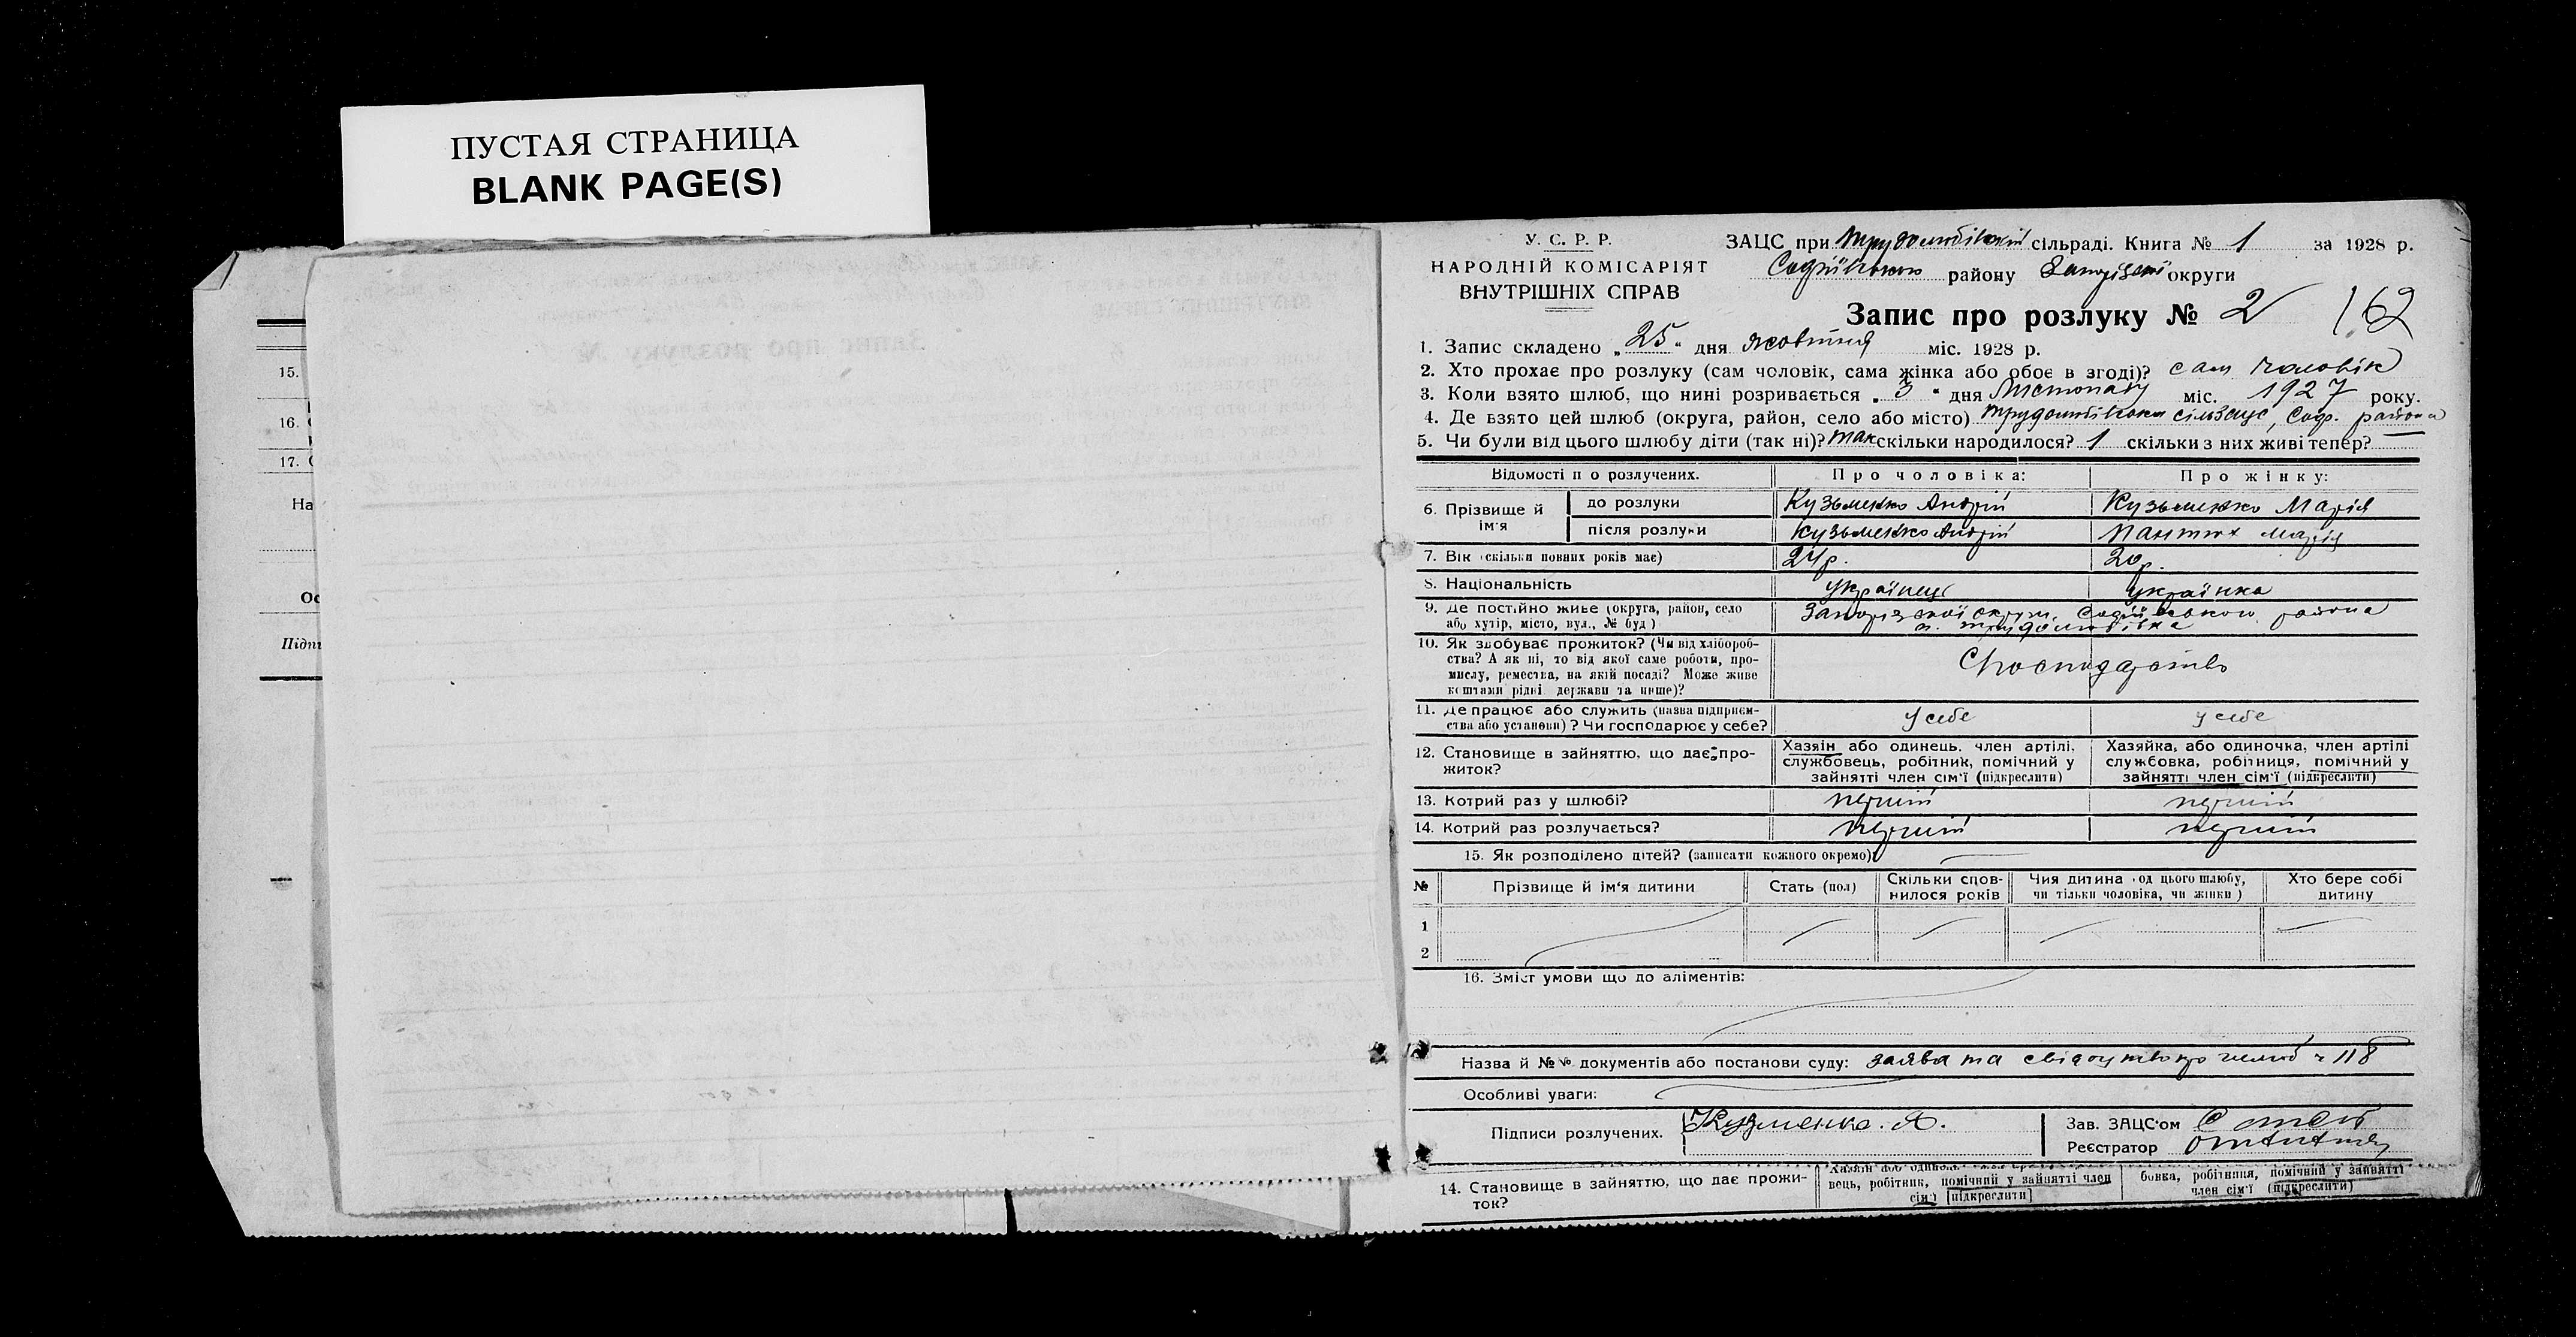 ПУСТАЯ СТРАНИЦА
BLANK PAGE(S)
15.
16.
17.
На
Ос
Підпи
У. С. Р. Р.
НАРОДНІЙ КОМІСАРІЯТ
ВНУТРІШНІХ СПРАВ
ЗАЦС при Трудолюбівській сільраді. Книга № 1 за 1928 р.
Софіївського району Запорізької округи
Запис про розлуку № 2
162
1. Запис складено „25" дня жовтня міс. 1928 р.
2. Хто прохає про розлуку (сам чоловік, сама жінка або обоє в згоді)? сам чоловік
3. Коли взято шлюб, що нині розривається „3" дня Листопаду міс. 1927 року.
4. Де взято цей шлюб (округа, район, село або місто) Трудолюбівськ сільзацс, Соф. района
5. Чи були від цього шлюбу діти (так ні)? так скільки народилося? 1 скільки з них живі тепер? —
Відомості п о розлучених. Про чоловіка: Про жінку:
6. Прізвище й ім'я
до розлуки Кузьменко Андрій Кузьменко Марія
після розлуки Кузьменко Андрій Пантюх Марія
7. Вік (скільки повних років має) 24р. 20р.
8. Національність Українець Українка
9. Де постійно живе (округа, район, село
або хутір, місто, вул., № буд)
Запорізької округи, Софіївського района
с. Трудолюбівка
10. Як здобуває прожиток? (Чи від хлібороб-
ства? А як ні, то від якої саме роботи, про-
мислу, ремества, на якій посаді? Може живе
коштами рідні держави та инше)?
11. Де працює або служить (назва підприєм-
ства або установи)? Чи господарює у себе?
у себе у себе
12. Становище в зайняттю, що дає про-
житок?
Хазяїн або одинець, член артілі,
службовець, робітник, помічний у
зайнятті член сім'ї (підкреслити)
Хазяйка, або одиночка, член артілі
службовка, робітниця, помічний у
зайнятті член сім'ї (підкреслити)
13. Котрий раз у шлюбі? перший перший
14. Котрий раз розлучається? перший перший
15. Як розподілено дітей? (записати кожного окремо)
№ Прізвище й ім'я дитини Стать (пол) Скільки спов-
нилося років Чия дитина (од цього шлюбу,
чи тільки чоловіка, чи жінки) Хто бере собі
дитину
1
2
16. Зміст умови що до аліментів:
Назва й №№ документів або постанови суду: заява та свідоцтво про шлюб ч 118
Особливі уваги:
Підписи розлучених. Кузменко. А.
Зав. ЗАЦС'ом
Реєстратор
14. Становище в зайняттю, що дає прожи-
ток?
вець, робітник, помічний у зайнятті член
сім'ї [підкреслити]
бовка, робітниця, помічний у зайнятті
член сім'ї (підкреслити)